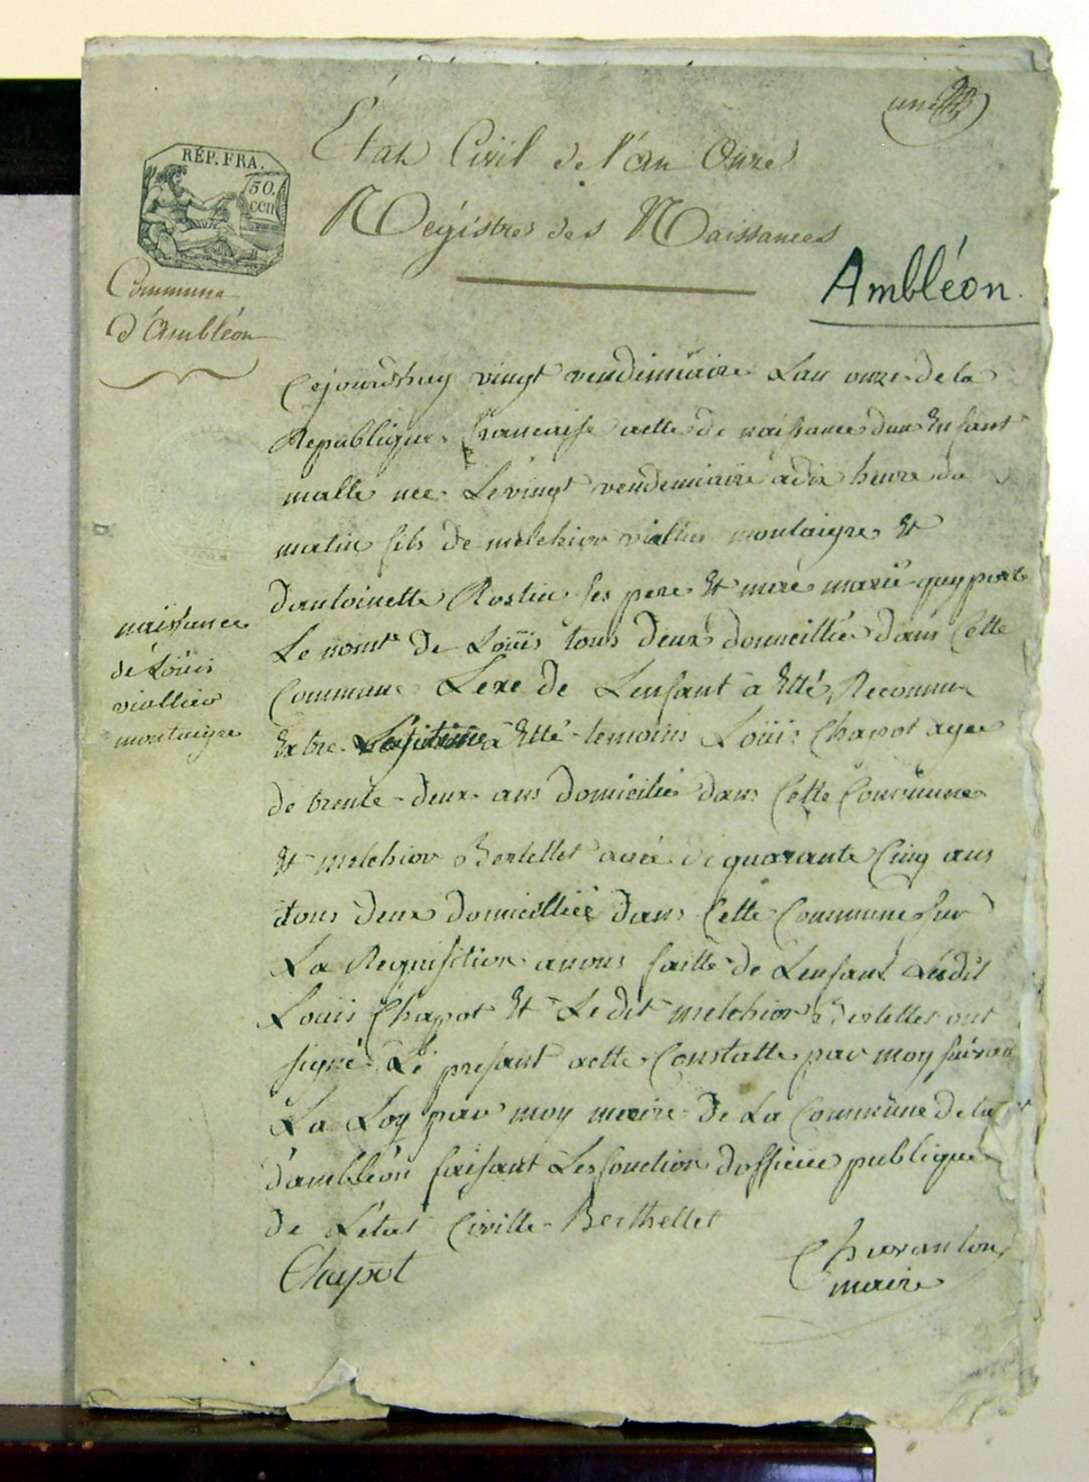 État Civil de l'an Onze
Régistres des Naissances
RÉP. FRA.
50.
CEN
Commune
d'Ambléon
Ambléon.
Cejourdhuy vingt vendimiaire Lan onze de la
Republique francaise actte de naissance dun Enfant
malle nee Le vingt vendemiaire a dix heure du
matin fils de melchior viallier montaigre Et
dantoinette Rostin ses pere Et mere marié quy porte
Le nomt de Loüis tous deux domicillié dans Cette
Commune Lexe de Lenfant a Etté Reconnu
Extre a Etté temoins Loüis Chapot agee
de trente deux ans domicilié dans Cette Commune
Et melchior Bertellet agée de quarante Cinq ans
tous deux domicillié dans Cette Commune sur
La Requisition anous faitte de Lenfant Ledit
Louis Chapot Et Ledit melchior Bertellet ont
signé Le present actte Constatte par moy suivan
La Loy par moy maire de La Commune de
dambléon faisant Les fonction dofficiee publique
de Létat Civille Berthellet
Chapot
Charanton
maire
naissance
de Loüis
viallier
montaigre